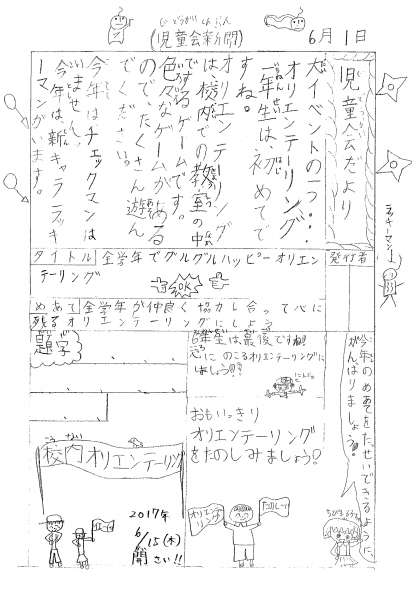 じどうかいしんぶん
(児童会新聞)
6月1日
児童会だより
大イベントの一つ…
オリエンテーリング
一年生は、初めてで
すね。
オリエンテーリング
は、校内での教室の中
でするゲームです。
色々なゲームがある
ので、たくさん遊ん
でください。
今年はチェックマンは
いません。
今年は、新キャララッキ
ーマンがいます。
ラッキーマン
タイトル
全学年でグルグルハッピーオリエン
テーリング
発行者
OK
めあて
全学年が仲良く協力し合って心に
残るオリエンテーリングにしよう
題字
6年生は最後ですね!
心にのこるオリエンテーリングに
しましょう!!
おもいっきり
オリエンテーリング
をたのしみましょう?
今年のめあてをたっせいできるように、
がんばりましょう。
こうない
校内オリエンテーリング
2017年
6/15(木)
開さい!!
オリエンテーリング
たのしみ